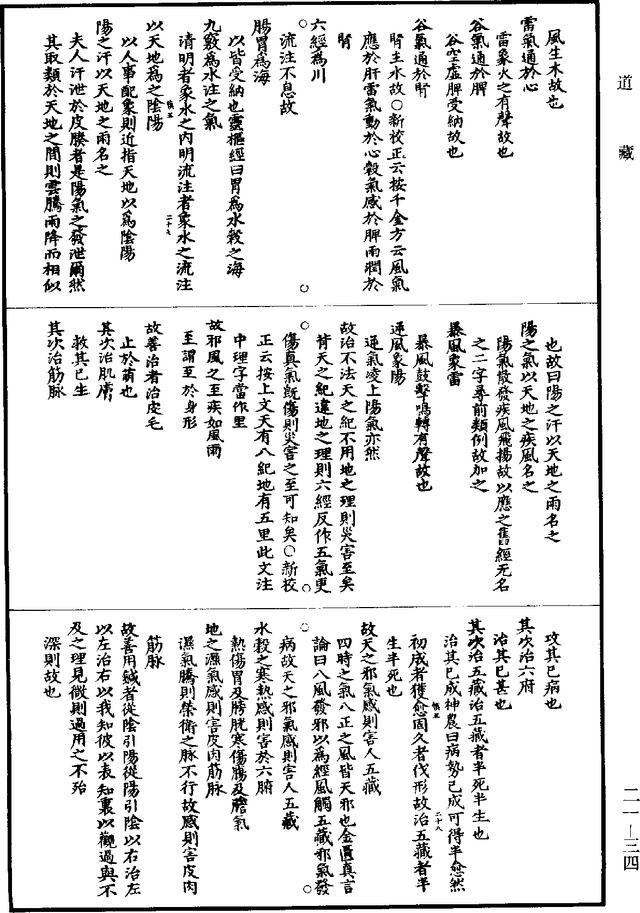 道藏
風生木故也
雷氣通於心
雷象火之有聲故也
谷氣通於脾
谷空虛脾受納故也
谷氣通於腎
腎主水故○新校正云按千金方云風氣
應於肝雷氣動於心穀氣感於脾雨潤於
腎
六經為川
流注不息故
腸胃為海
以皆受納也靈樞經曰胃為水穀之海
九竅為水注之氣
清明者象水之内明流注者象水之流注
以天地為之陰陽
以人事配象則近指天地以為陰陽
陽之汗以天地之雨名之
夫人汗泄於皮腠者是陽氣之發泄爾然
其取類於天地之間則雲騰雨降而相似
也故曰陽之汗以天地之雨名之
陽之氣以天地之疾風名之
陽氣散發疾風飛揚故以應之舊經无名
之二字尋前類例故加之
暴風象雷
暴風鼓擊鳴轉有聲故也
逆風象陽
逆氣凌上陽氣亦然
故治不法天之紀不用地之理則災害至矣
背天之紀違地之理則六經反作五氣更
傷真氣既傷則災害之至可知矣○新校
正云按上文天有八紀地有五里此文注
中理字當作里
故邪風之至疾如風雨
至謂至於身形
故善治者治皮毛
止於萌也
其次治肌膚
救其已生
其次治筋脉
攻其已病也
其次治六府
治其已甚也
其次治五藏治五藏者半死半生也
治其已成神農曰病勢已成可得半愈然
初成者獲愈固久者伐形故治五藏者半
生半死也
故天之邪氣感則害人五藏
四時之氣八正之風皆天邪也金匱真言
論曰八風發邪以為經風觸五藏邪氣發
病故天之邪氣感則害人五藏
水穀之寒熱感則害於六腑
熱傷胃及膀胱寒傷腸及膽氣
地之濕氣感則害皮肉筋脉
濕氣勝則榮衛之脉不行故感則害皮肉
筋脉
故善用鍼者從陰引陽從陽引陰以右治左
以左治右以我知彼以表知裏以觀過與不
及之理見微則過用之不殆
深則故也
二一—三四